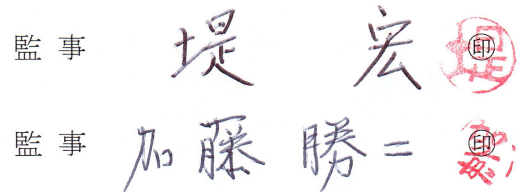 監事 堤 宏 ㊞
監事 加藤 勝二 ㊞